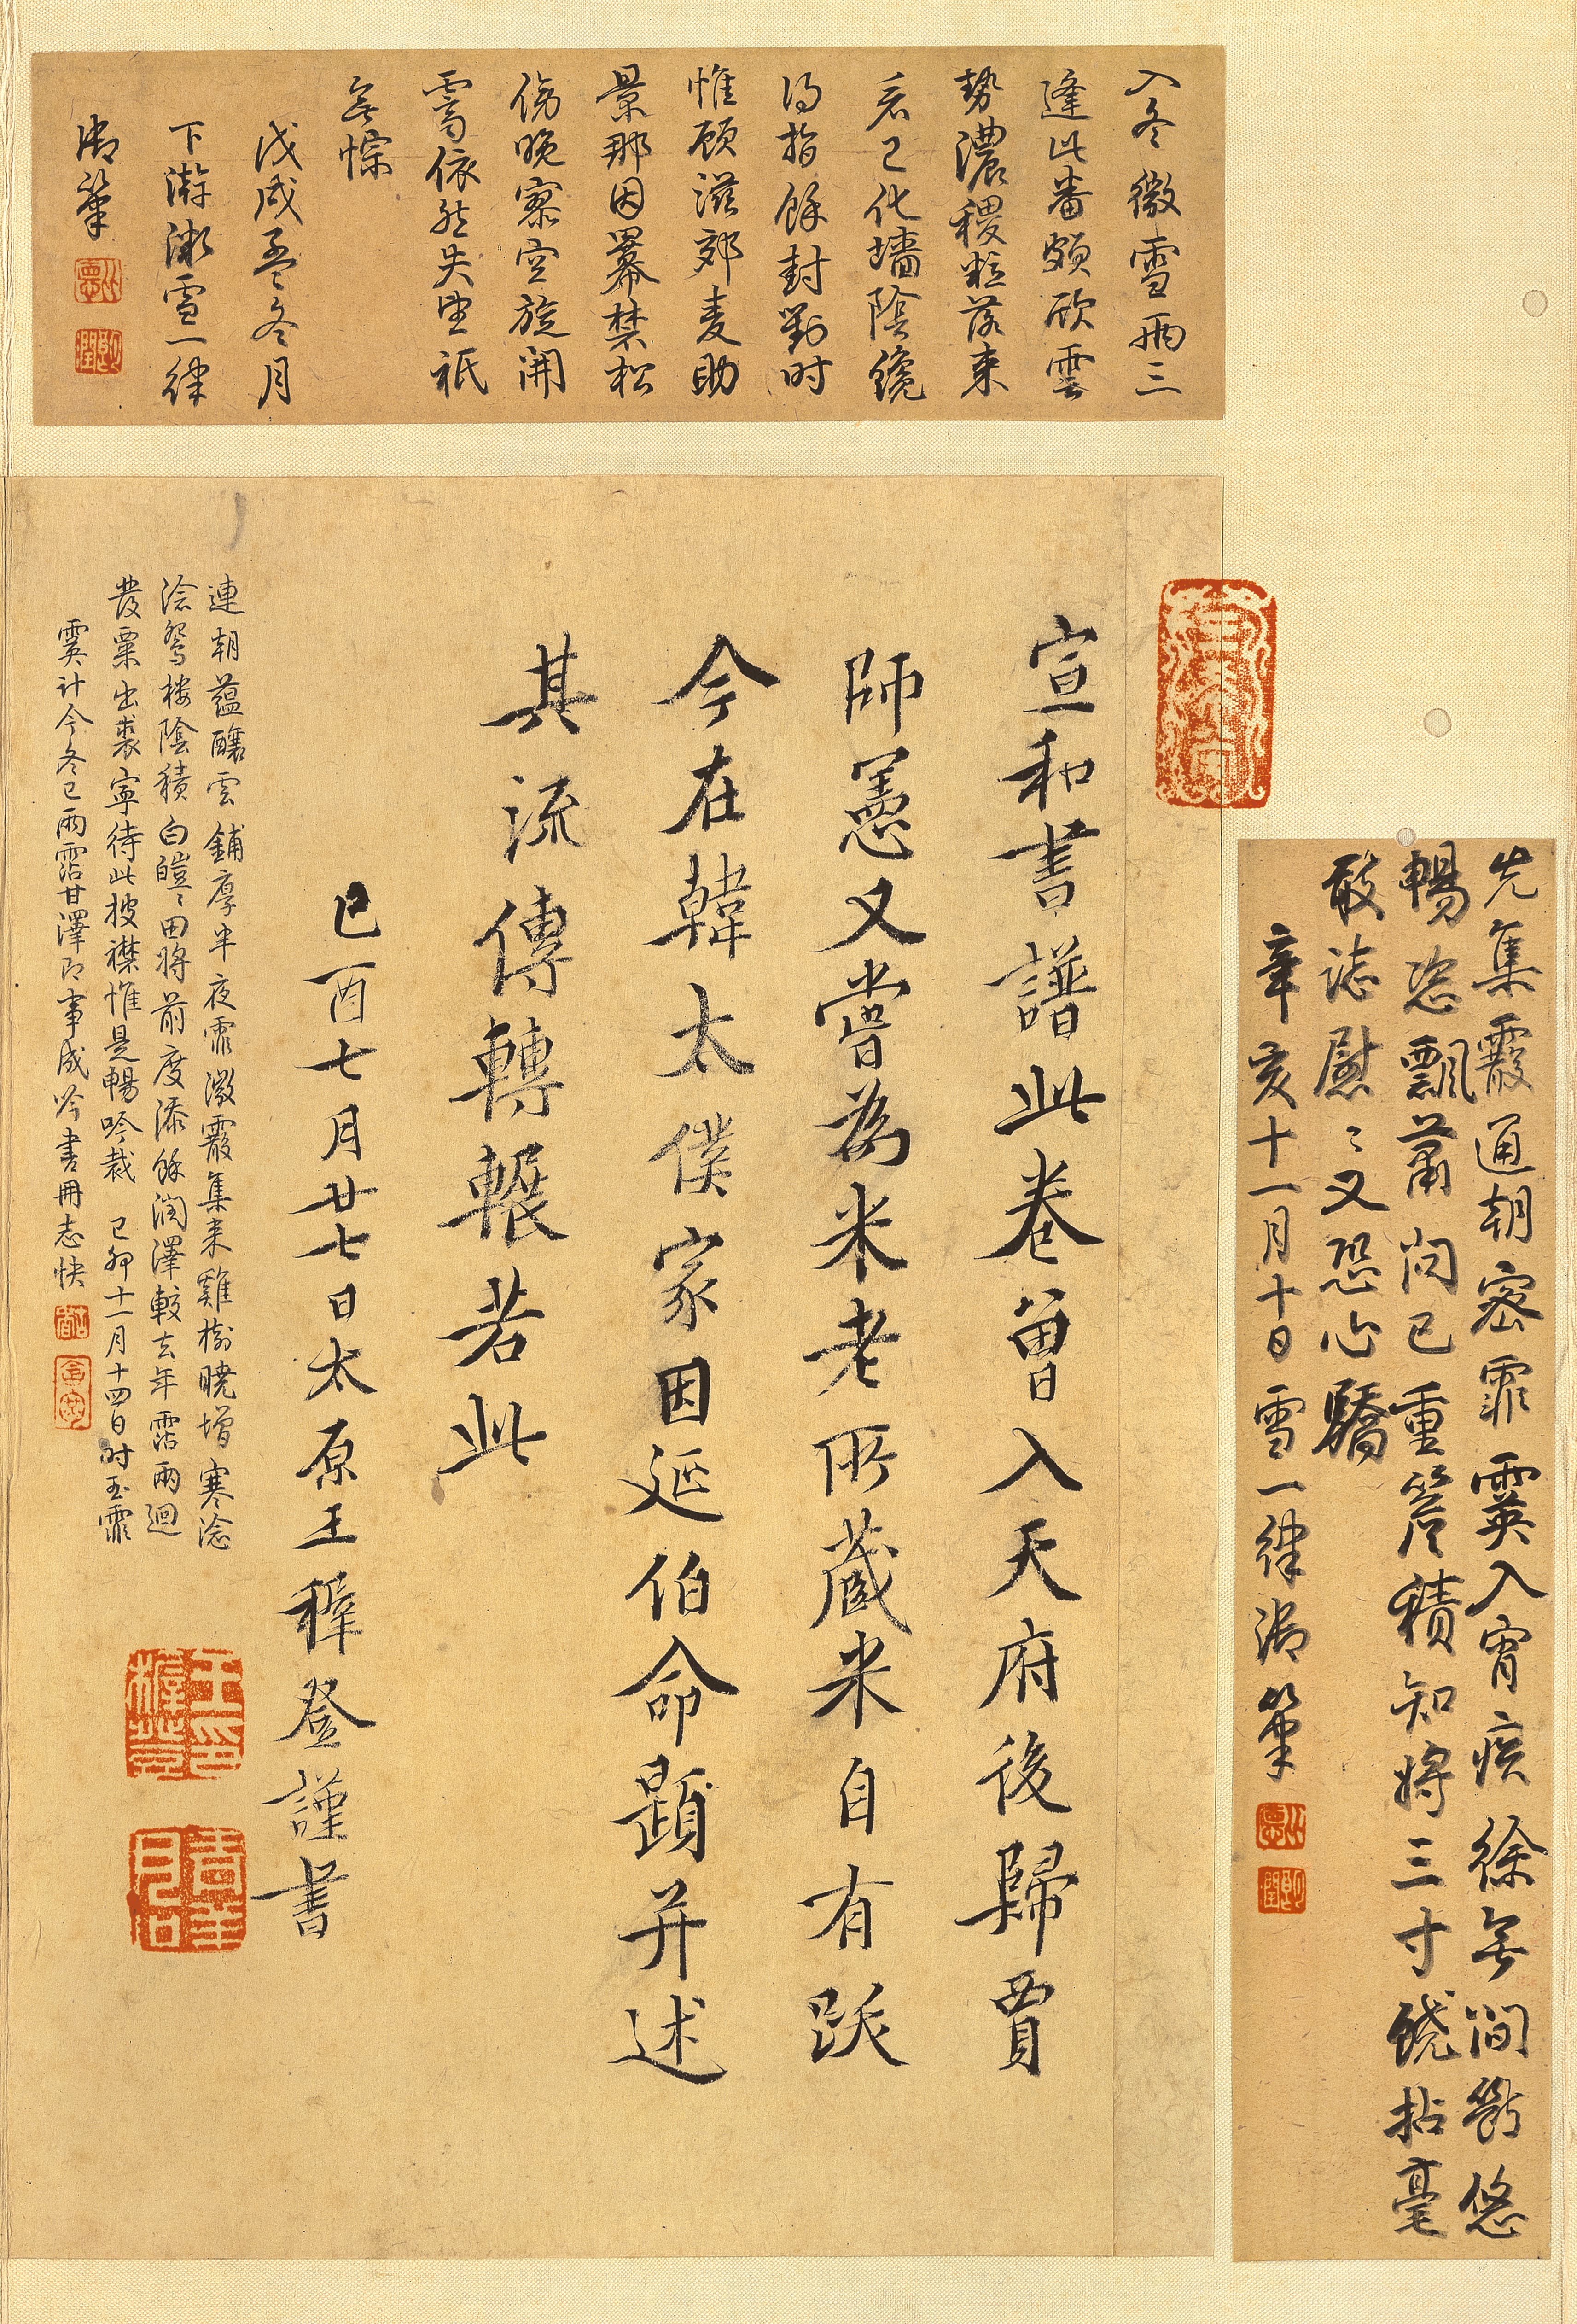 入冬微雪兩三
逢此番頗欣雲
勢濃稷粒落來
看已化墻陰纔
得指餘封對時
惟願滋郊麦助
景那因羃禁松
傍晚寥空旋開
霽依然失望祇
無悰
戊戌孟冬月
下澣微雪一律
御筆
先集霰通朝密霏霙入宵疾徐無間斷悠
暢恣飄蕭問已重簷積知將三寸饒拈毫
敬誌慰〻又恐心驕
辛亥十一月十日雪一律御筆
宣和書譜此卷曾入天府後歸賈
師憲又嘗為米老所蔵米自有跋
今在韓太僕家因延伯命題并述
其流傳轉輾若此
己酉七月廿七日太原王穉登謹書
連朝蘊釀雲鋪厚半夜霏微霰集来雞樹曉增寒淰
淰鴛樓陰積白皚〻田將前度添餘潤澤較去年霑兩迴
發粟出裘寧待此披襟惟是暢吟裁 己卯十一月十四日時玉霏
霙計今冬已兩霑甘澤即事成吟書冊志快